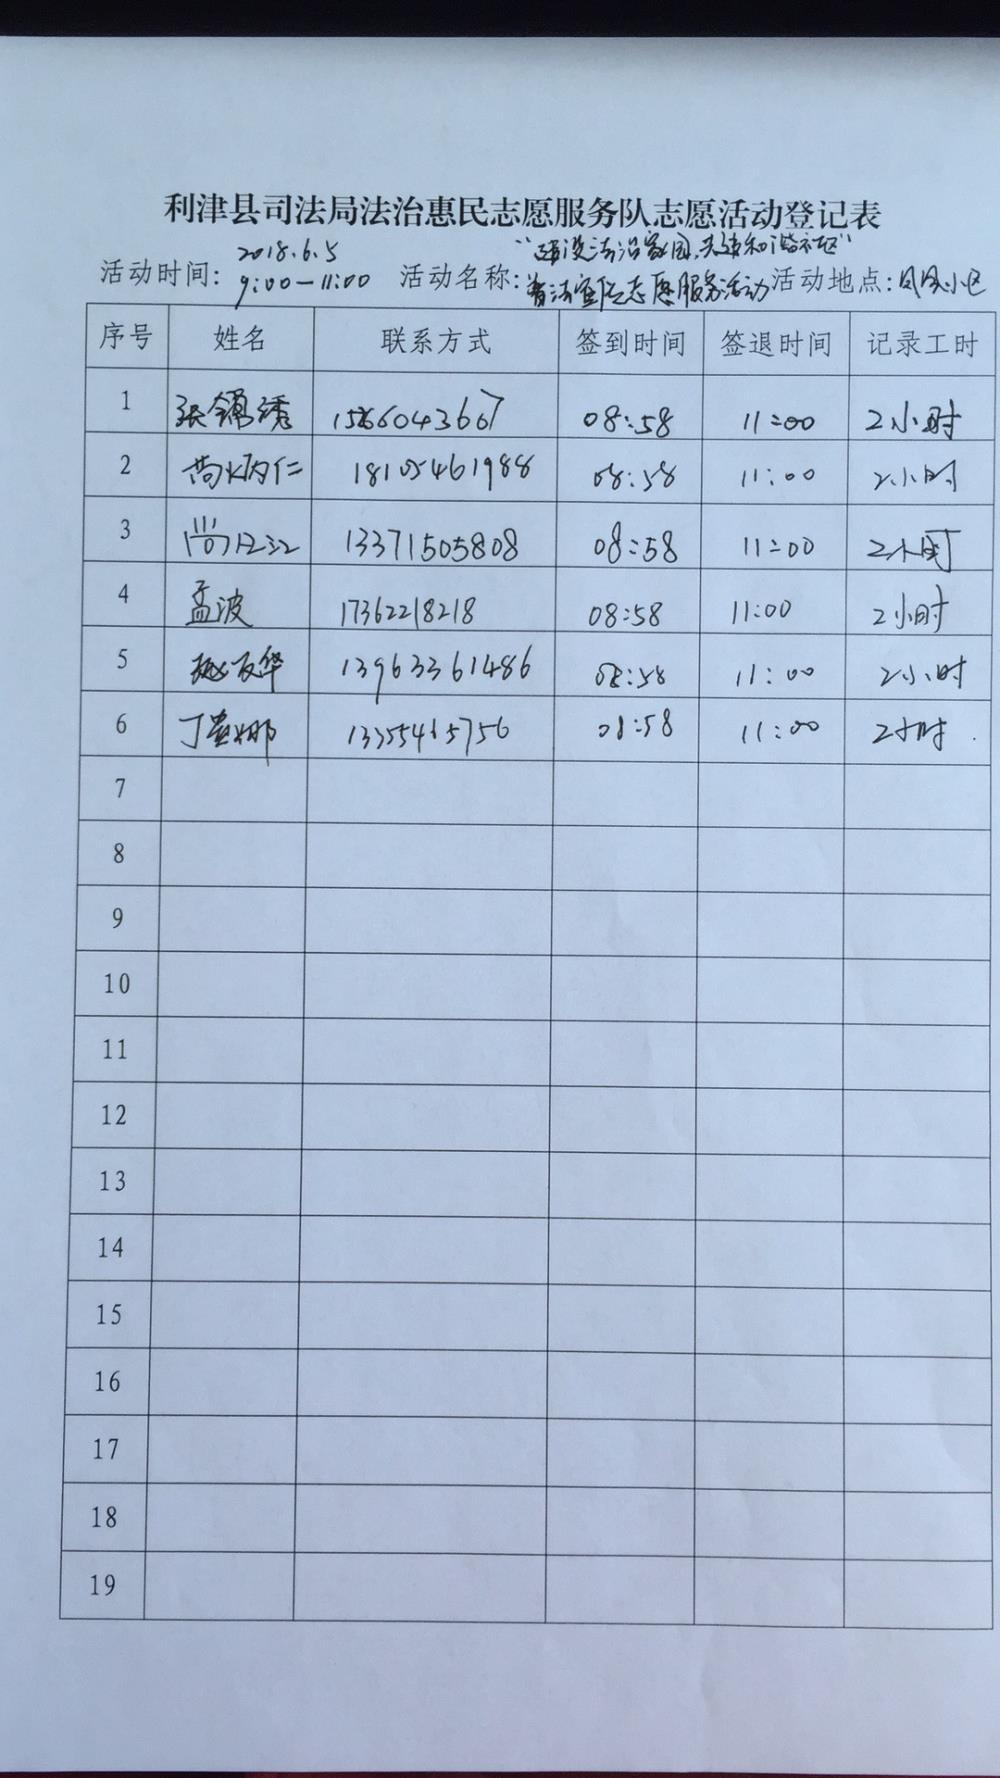 利津县司法局法治惠民志愿服务队志愿活动登记表
2018.6.5 “建设法治家园,共建和谐社区”
活动时间: 9:00—11:00 活动名称: 普法宣传志愿服务活动 活动地点: 凤凰小区
序号 姓名 联系方式 签到时间 签退时间 记录工时
1 张锦绣 08:58 11:00 2小时
2 尚炳仁 18105461988 08:58 11:00 2小时
3 13371505808 08:58 11:00 2小时
4 孟波 17362218218 08:58 11:00 2小时
5 13963361486 08:58 11:00 2小时
6 13355465756 08:58 11:00 2小时
7
8
9
10
11
12
13
14
15
16
17
18
19